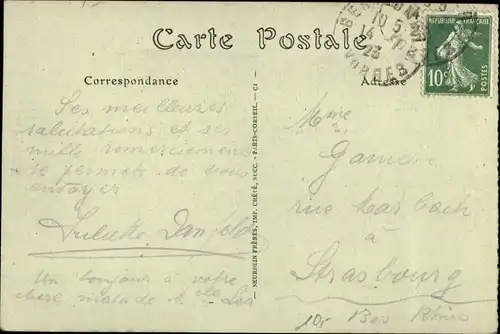 Carte Postale
Correspondance
Adresse
REPUBLIQUE FRANÇAISE
10c
VOSGES
Ses meilleures
salutations et ses
mille remerciements
se permets de vous
envoyer
Juliette
Un bonjour à votre
chère malade Mlle Léa
NEURDEIN FRÈRES, IMP. CRÉTÉ, SUCC. - PARIS-CORBEIL. - C4
Mme
rue
à
Strasbourg
Bas Rhin